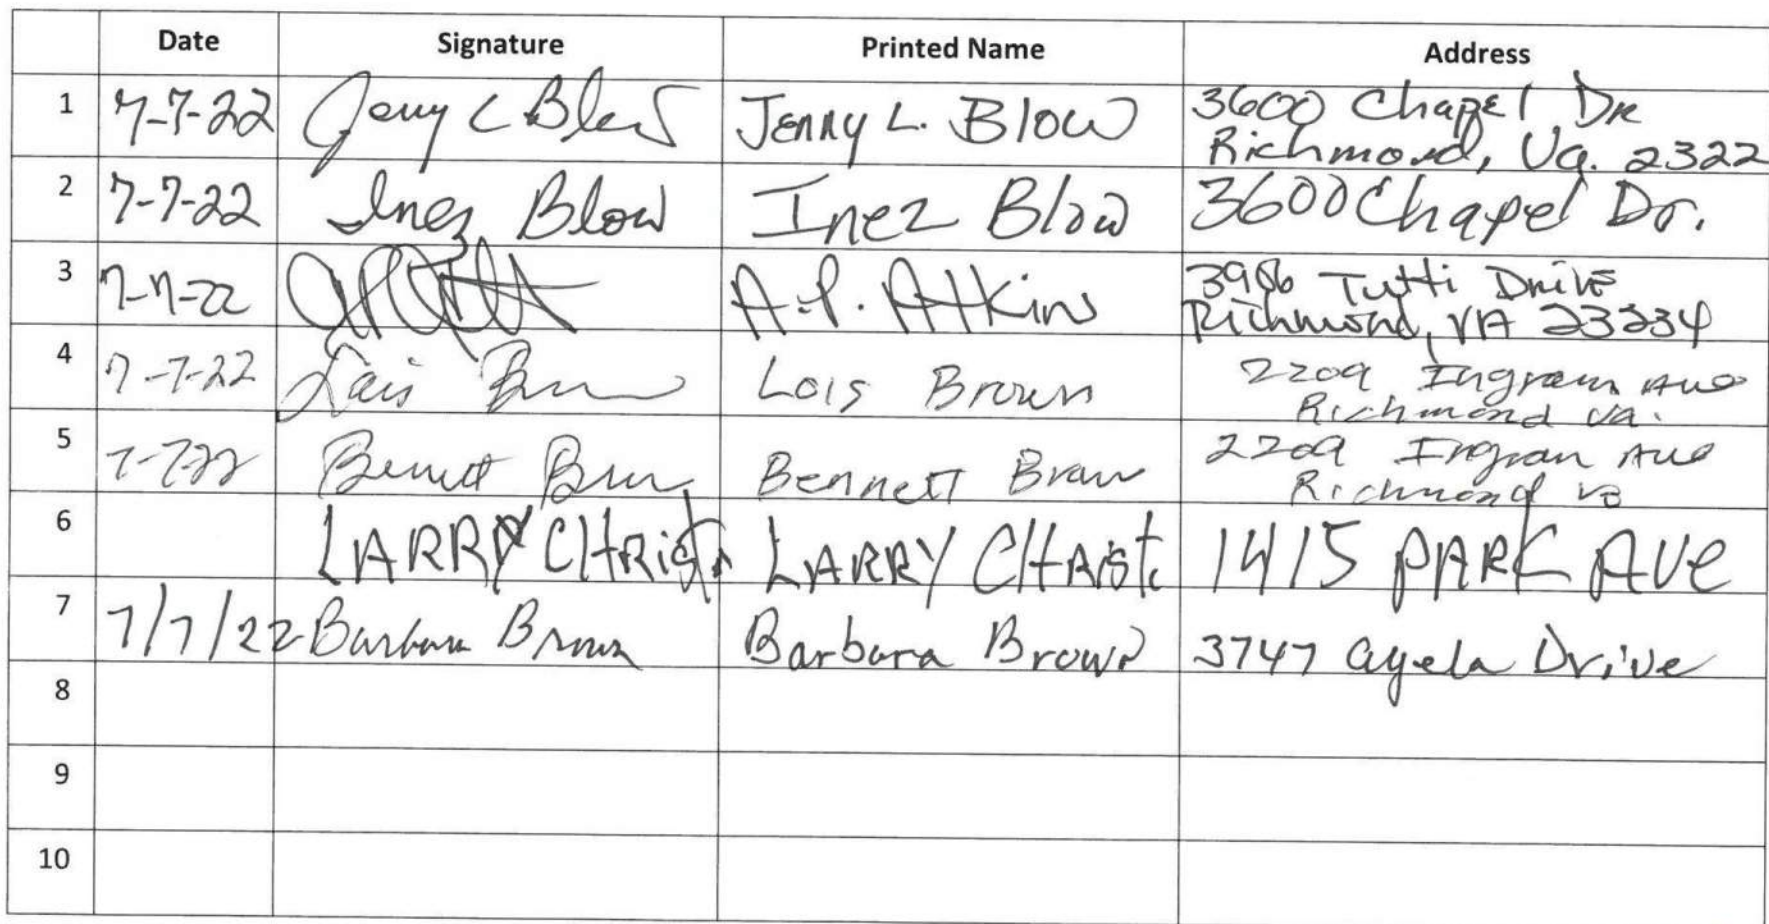 Date Signature Printed Name Address
1 7-7-22 Jenny L Blow JENNY L. Blow 3600 Chapel DR
Richmond, Va. 2322
2 7-7-22 Inez Blow Inez Blow 3600 Chapel Dr.
3 7-7-22 A.P. Atkins 3986 Tutti Drive
Richmond, VA 23234
4 7-7-22 Lois Brown Lois Brown 2209 Ingram Ave
Richmond Va.
5 7-7-22 Bennett Brown Bennett Brown 2209 Ingram Ave
Richmond Va
6 LARRY CHRisti LARRY CHRisti 1415 PARK AVe
7 7/7/22 Barbara Brown Barbara Brown 3747 Drive
8
9
10